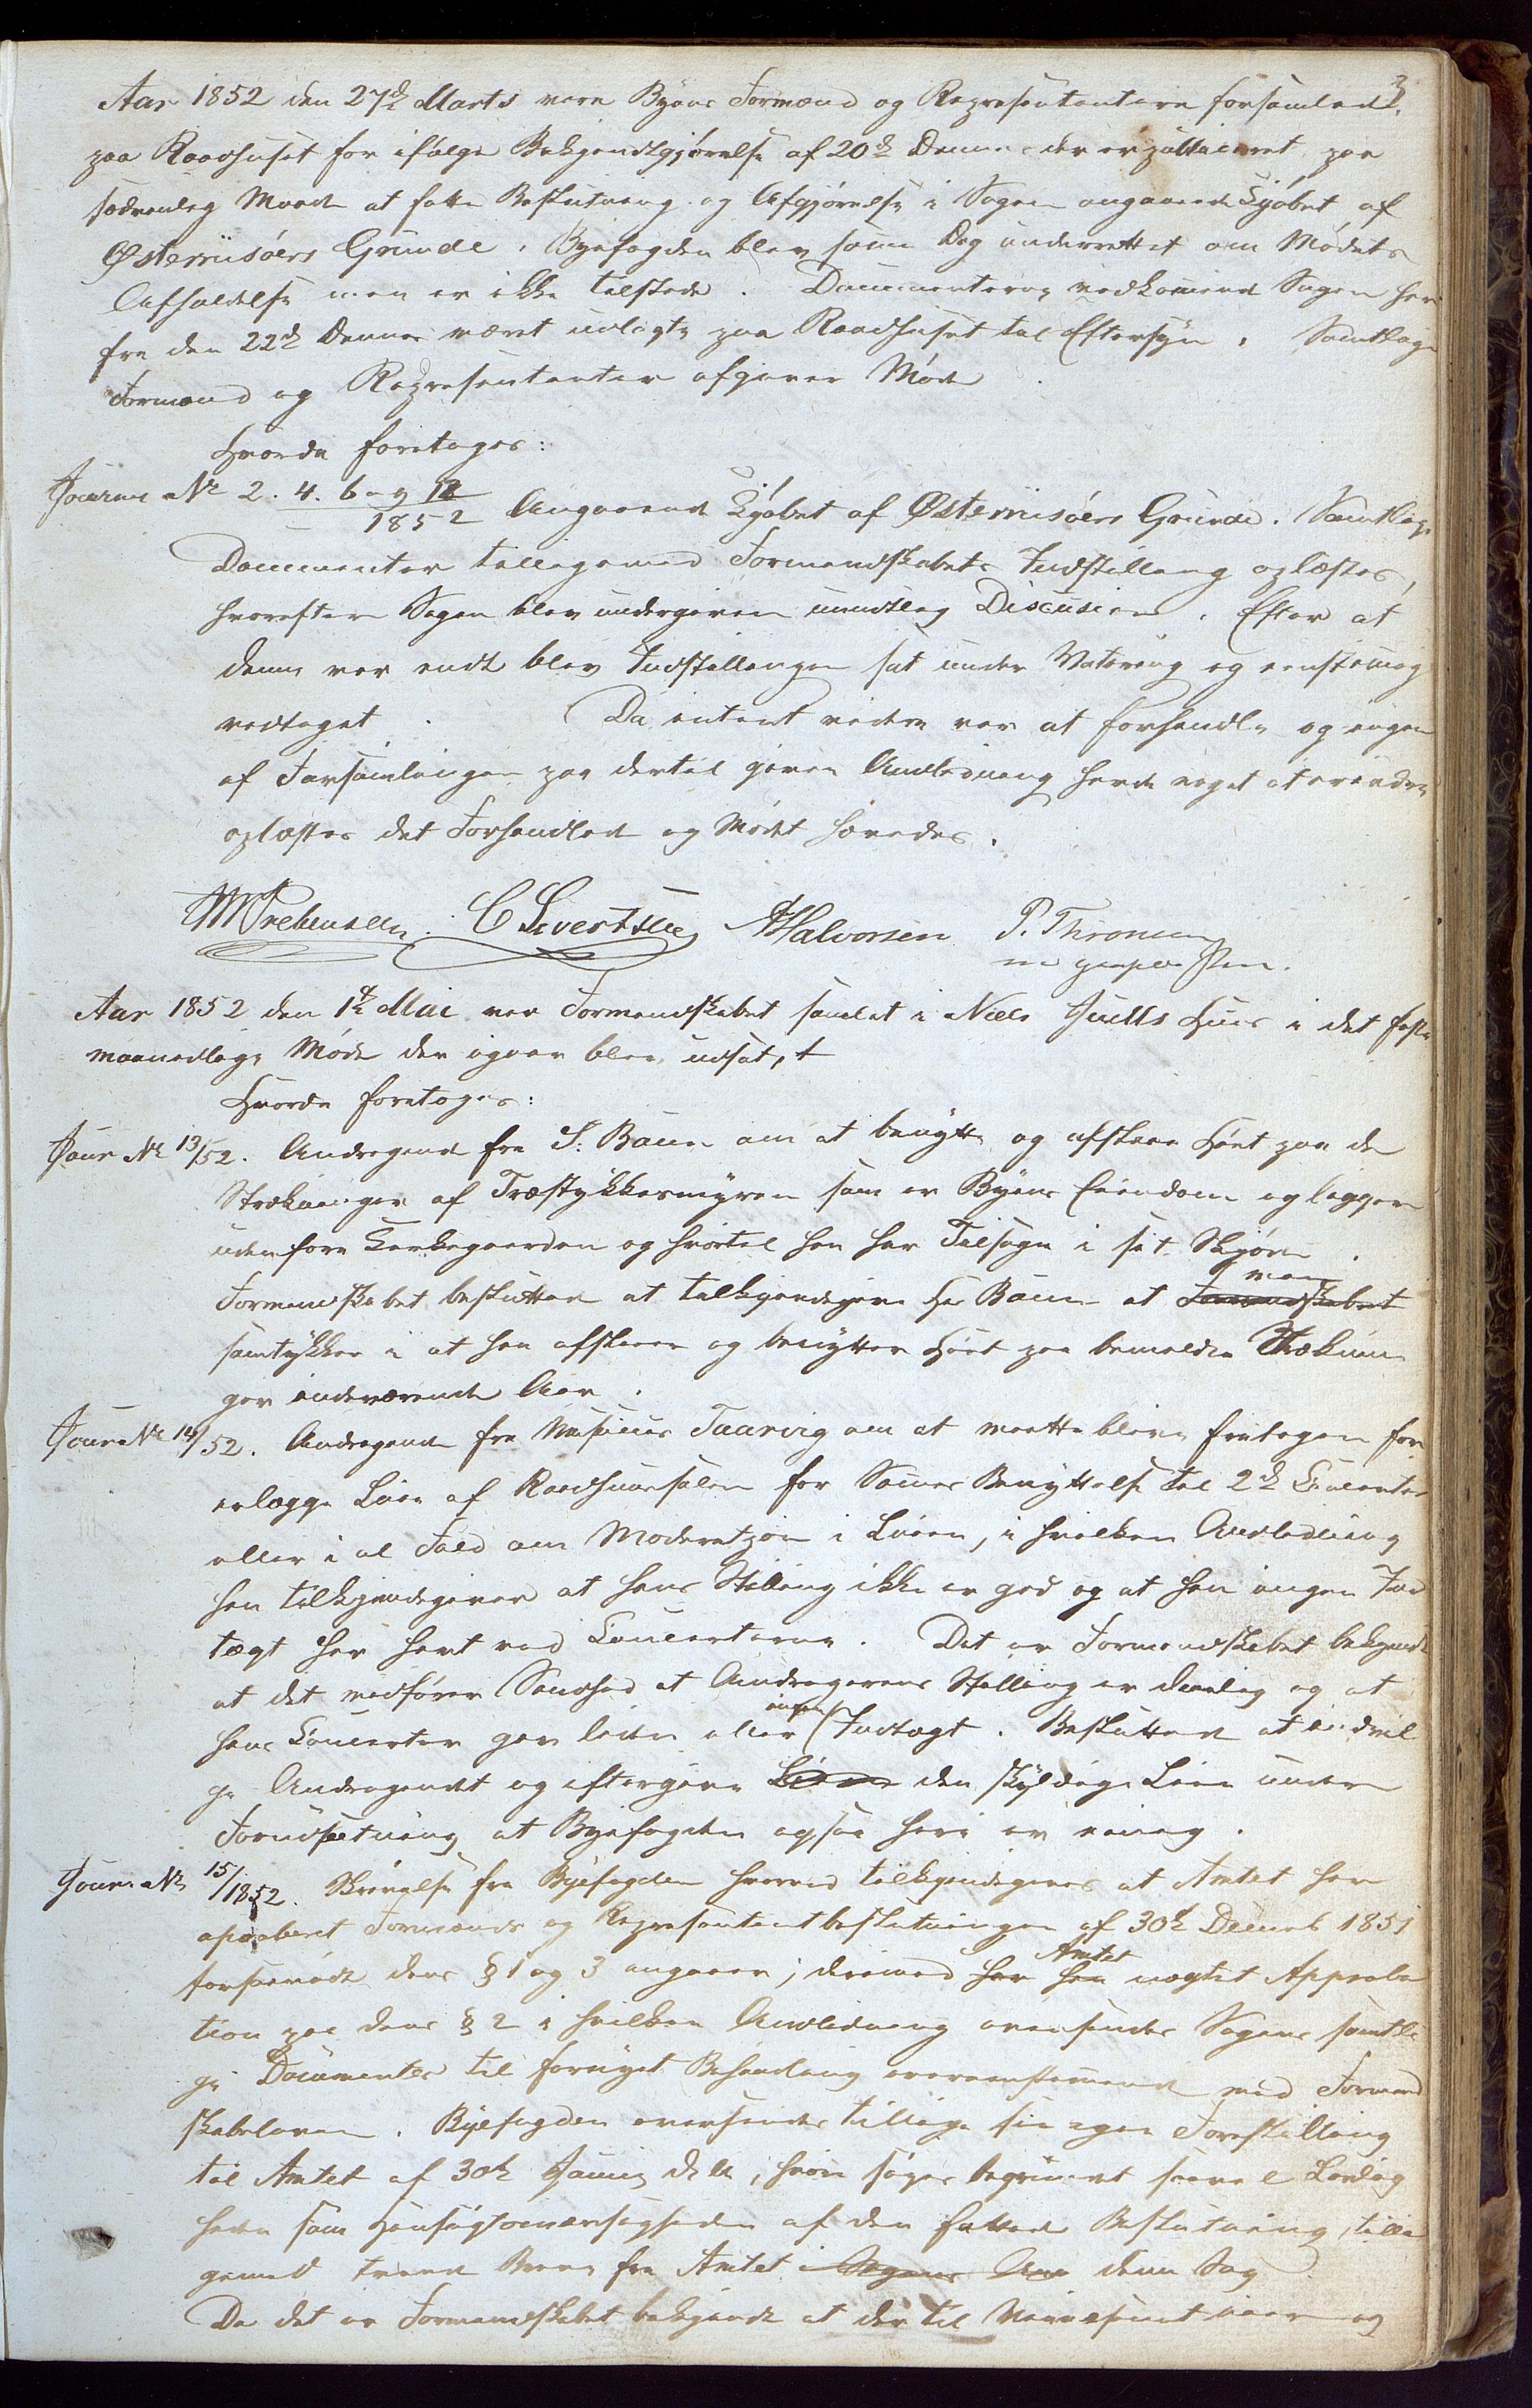 3
Aar 1852 den 27de Marts vare Byens Formænd og Repræsentantere forsamlede
paa Raadhuset for ifølge Bekjendtgjørelse af 20de Dennes der er publiceret paa
sædvanlig Maade at fatte Beslutning og Afgjørelse i Sagen angaaende Kjøbet af
Østerriisøers Grunde. Byefogden blev samme Dag underrettet om Mødets
Afholdelse men er ikke tilstede. Documenterne vedkommende Sagen har
fra den 22de Dennes været udlagte paa Raadhuset til Eftersyn. Samtlige
Formænd og Repræsentanter afgiver Møde.
Hvorda foretages:
Journ No 2. 4. 6 og 12
1852 Angaaende Kjøbet af Østerriisøers Grunde. Samtlige
Documenter tilligemed Formandskabets Indstilling oplæstes,
hvorefter Sagen blev undergiven mundtlig Discusion. Efter at
denne var endt blev Indstillingen sat under Votering og eenstemmig
vedtaget. Da intent videre var at forhandle og ingen
af Forsamlingen paa dertil given Anledning havde noget at erindre
oplæstes det Forhandlede og Mødet hævedes.
M Prebensen. C Sivertsen AHalvorsen P. Thronsen
m paaholden Pen.
Aar 1852 den 1ste Mai var Formandskabet samlet i Niels Juells Huus i det faste
maanedlige Møde der igaar blev udsat, t
Hvorda foretages:
Jour No 13/52. Andragende fra S: Baun om at benytte og afslaae Høet paa de
Strækninger af Træstykkesmyren som er Byens Eiendom og ligger
udenfore Kirkegaarden og hvortil han har Tilsagn i sit Skjøde.
Formandskabet beslutter at tilkjendegive Hr Baun at Formandskabet man
samtykker i at han afslaaer og benytter Høet paa bemeldte Strækninn
ger indeværende Aar.
Journ No 14/52. Andragende fra Musicus Taarvig om at maatte blive fritagen for
erlægge Leie af Raadhuussalen for Sammes Benyttelse til 2de Concerter
eller i al Fald om Moderatjon i Leien, i hvilken Anledning
han tilkjendegiver at hans Stilling ikke er god og at han ingen Ind
tægt har havt ved Concerterne. Det er Formandskabet bekjendt
at det medfører Sandhed at Andragerens Stilling er daarlig og at
hans Concerter gav liden eller ingen Indtægt. Besluttede at indvil
ge Andragendet og eftergive Leien den skyldige Leie under
Forudsætning at Byefogden ogsaa heri er einig.
Journ No 15/1852. Skrivelse fra Byefogden hvorved tilkjendegives at Amtet har
aproberet Formænds og Repræsentantbeslutningen af 30te Decemb 1851
forsaavidt dens § 1 og 3 angaaer; derimod har han Amtet nægtet Approba
tion paa dens § 2 i hvilken Anledning oversendes Sagens samtli
ge Documenter til fornyet Behandling overeensstemmende med Formand
skabsloven. Byefogden oversender tillige sin egen Forestilling
til Amtet af 30te Januar d: A:, hvori søges begrundet saavel Lovlig
heden som Hensigtsmæssigheden af den fattede Beslutning, tilli
gemed trende Breve fra Amtet i Sagens An denne Sag
Da det er Formandskabet bekjendt at der til